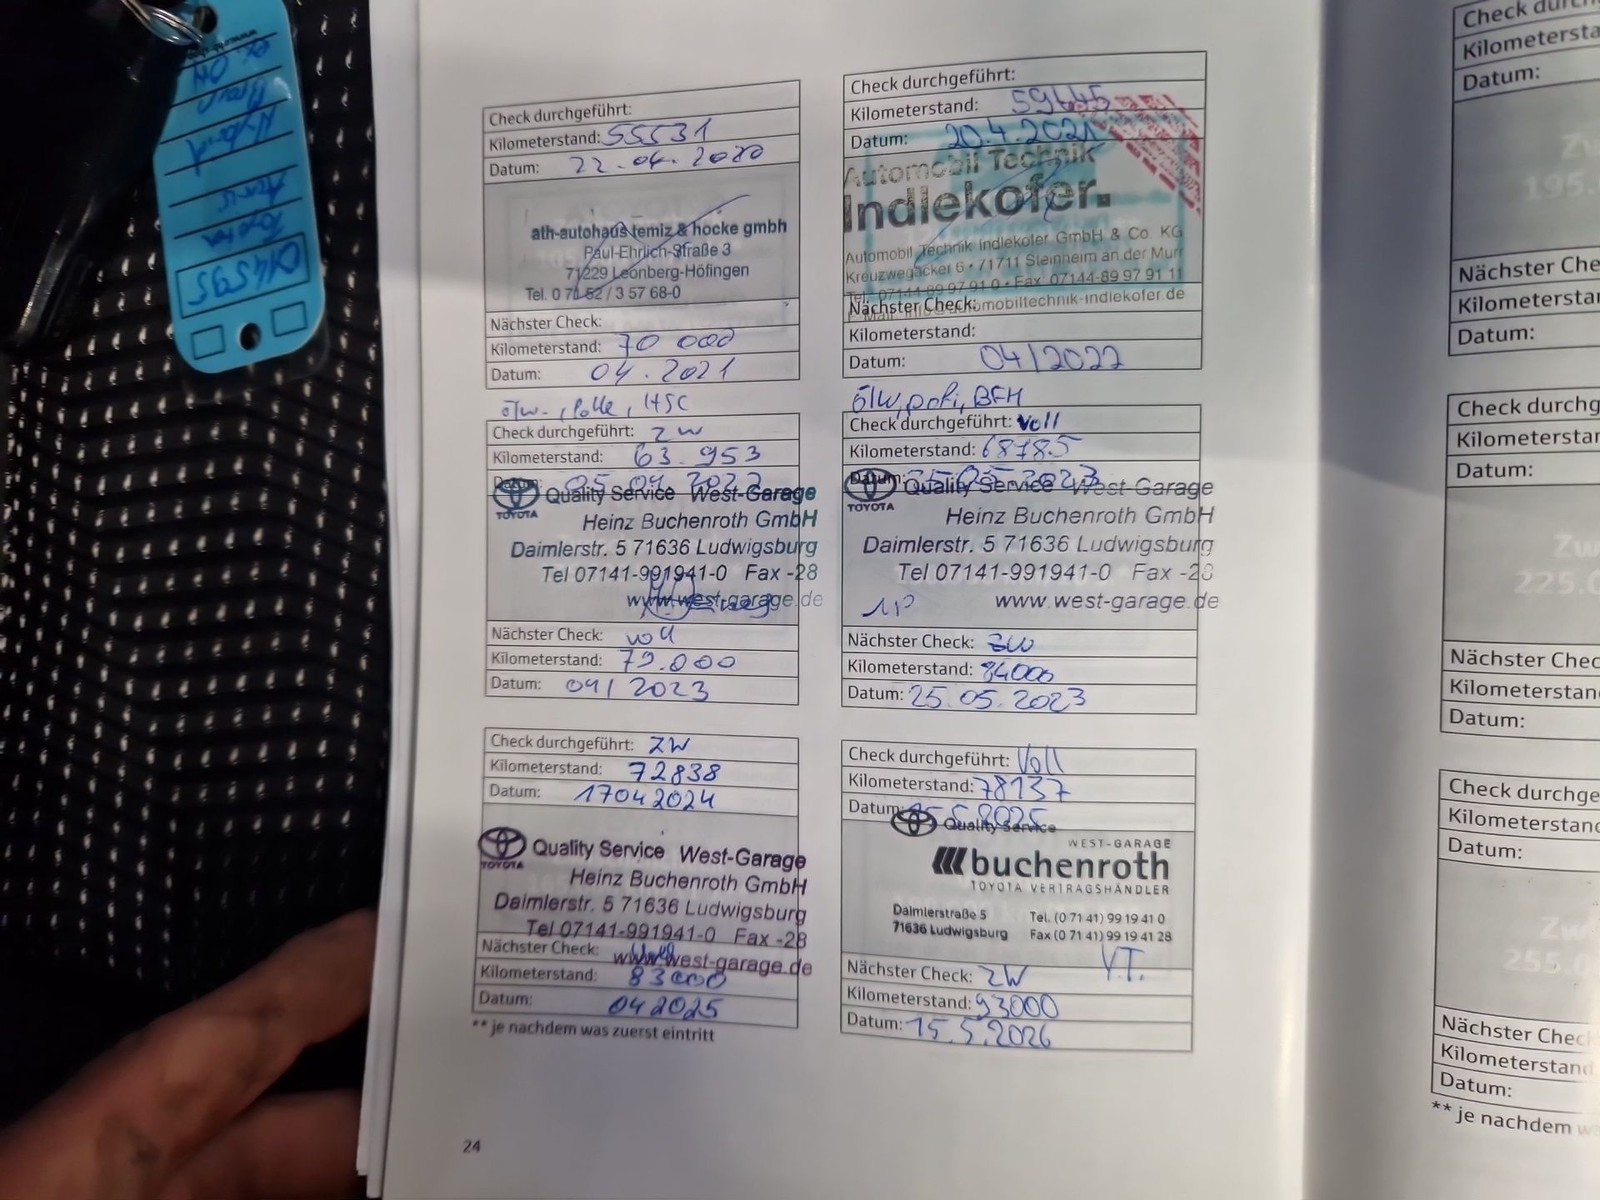 014595
Check durchgeführt:
Kilometerstand: 55531
Datum: 22.04.2020
ath-autohaus temiz & höcke gmbh
Paul-Ehrlich-Straße 3
71229 Leonberg-Höfingen
Tel. 0 71 52 / 3 57 68-0
Nächster Check:
Kilometerstand: 70 000
Datum: 04.2021
Check durchgeführt:
Kilometerstand: 59645
Datum: 20.4.2021
Automobil Technik
Indlekofer.
Automobil Technik Indlekofer GmbH & Co. KG
Kreuzwegäcker 6 • 71711 Steinheim an der Murr
Tel. 07144-89 97 91 0 • Fax 07144-89 97 91 11
Nächster Check:
Kilometerstand:
Datum: 04/2022
Check durchgeführt: ZW
Kilometerstand: 63.953
Datum:
TOYOTA
Quality Service West-Garage
Heinz Buchenroth GmbH
Daimlerstr. 5 71636 Ludwigsburg
Tel 07141-991941-0 Fax -28
www.west-garage.de
Nächster Check: voll
Kilometerstand: 79.000
Datum: 04/2023
Check durchgeführt: Voll
Kilometerstand: 68785
Datum:
TOYOTA
Quality Service West-Garage
Heinz Buchenroth GmbH
Daimlerstr. 5 71636 Ludwigsburg
Tel 07141-991941-0 Fax -28
www.west-garage.de
Nächster Check: ZW
Kilometerstand: 84000
Datum: 25.05.2023
Check durchgeführt: ZW
Kilometerstand: 72838
Datum: 17042024
TOYOTA
Quality Service West-Garage
Heinz Buchenroth GmbH
Daimlerstr. 5 71636 Ludwigsburg
Tel 07141-991941-0 Fax -28
www.west-garage.de
Nächster Check:
Kilometerstand: 83000
Datum: 042025
** je nachdem was zuerst eintritt
Check durchgeführt: Voll
Kilometerstand: 78137
Datum:
Quality Service
WEST-GARAGE
buchenroth
TOYOTA VERTRAGSHÄNDLER
Daimlerstraße 5 Tel. (0 71 41) 99 19 41 0
71636 Ludwigsburg Fax (0 71 41) 99 19 41 28
Nächster Check: ZW
Kilometerstand: 93000
Datum: 15.5.2026
24
Kilometersta
Datum:
195.
Nächster Che
Kilometerstar
Datum:
Check durchg
Kilometerstar
Datum:
225.0
Nächster Chec
Kilometerstan
Datum:
Check durchge
Kilometerstan
Datum:
255.0
Nächster Chec
Kilometerstand
Datum:
** je nachdem